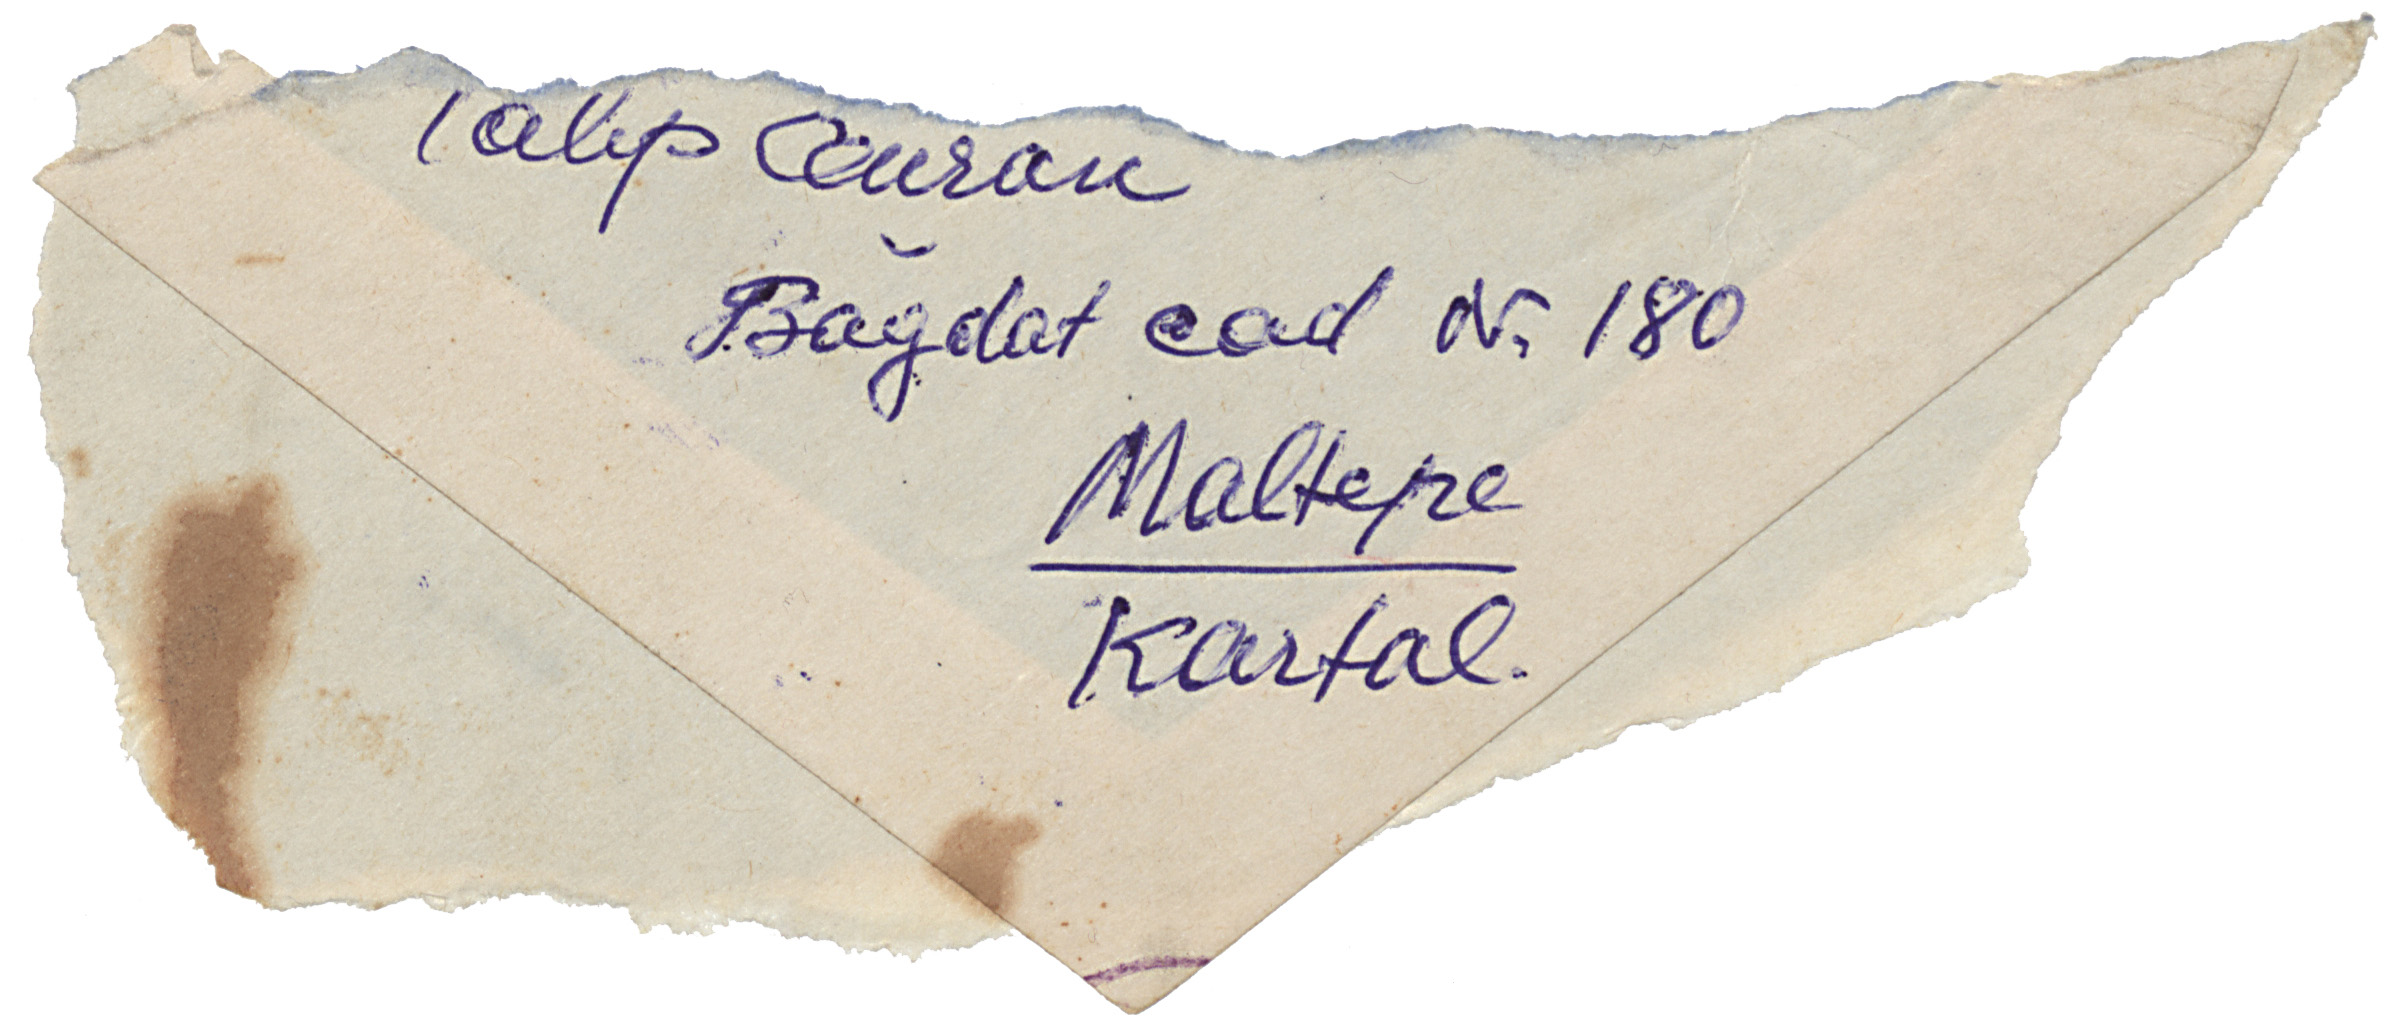 Talip
Bağdat cad Nr. 180
Maltepe
Kartal.